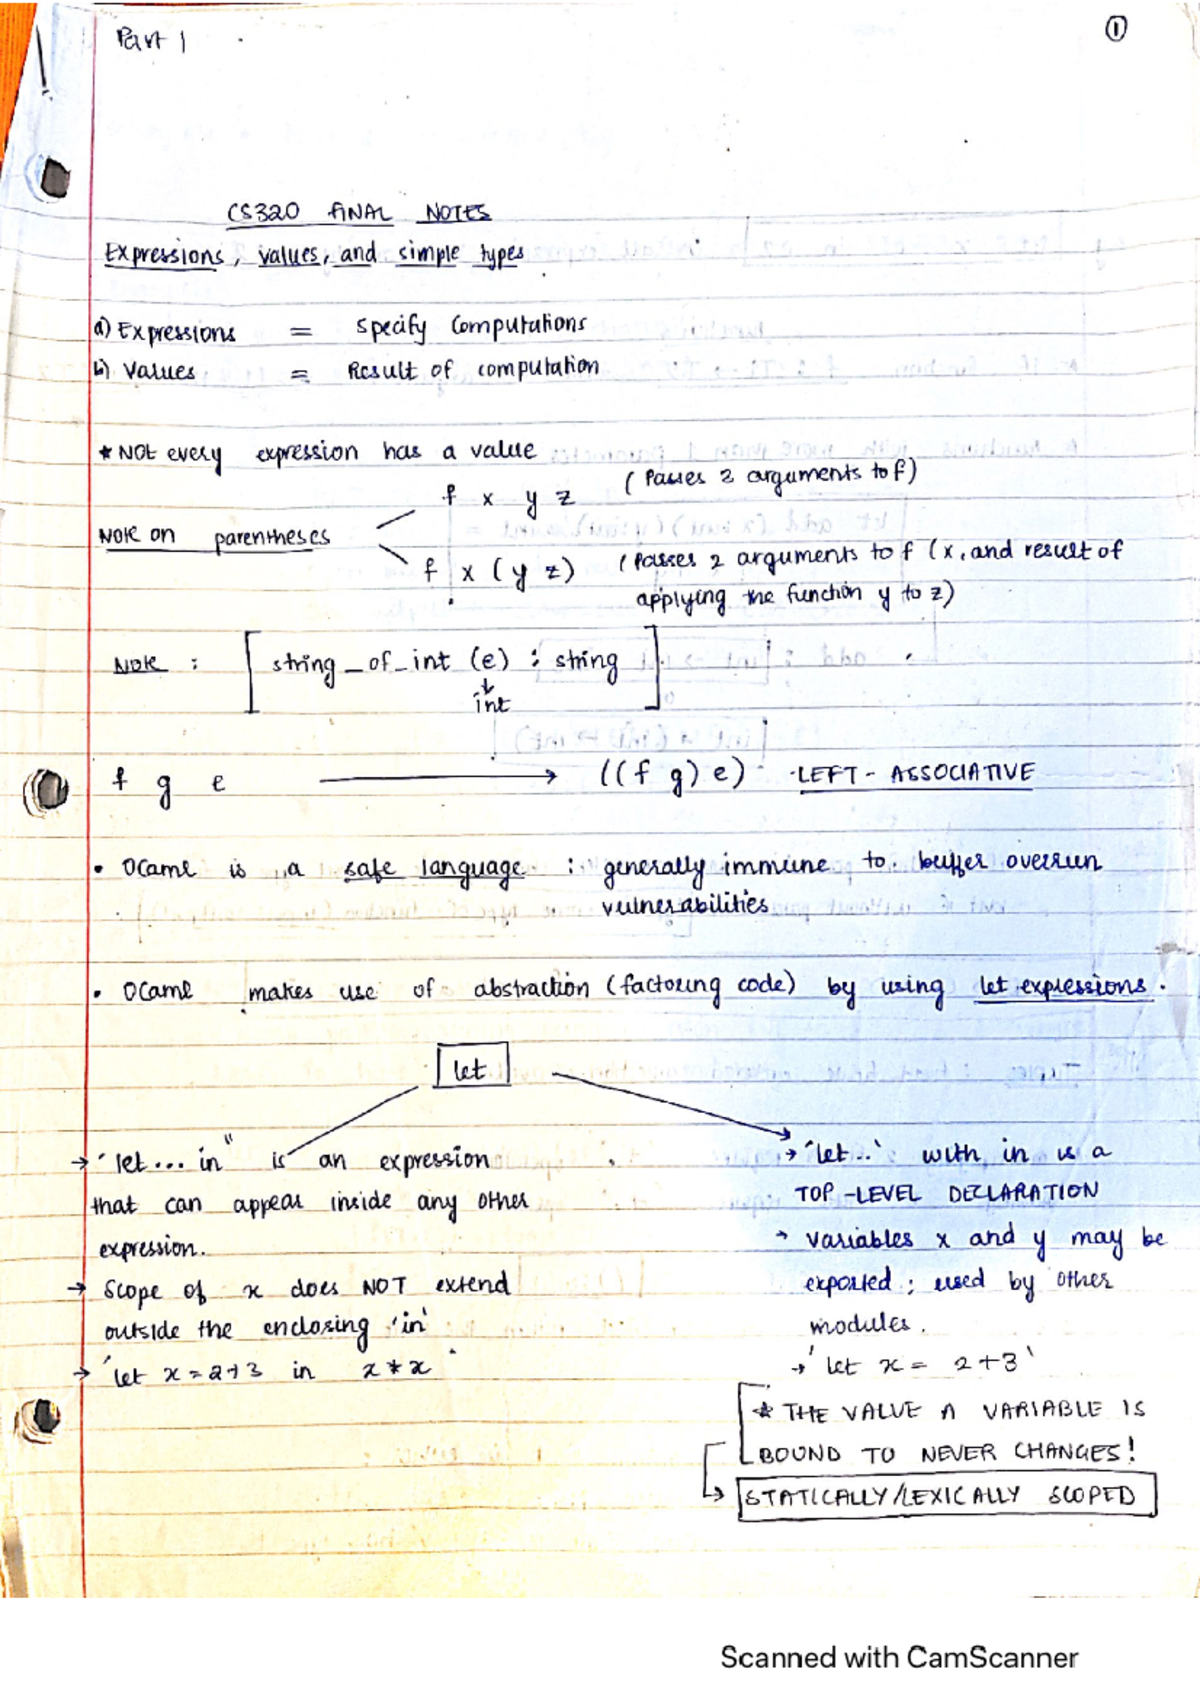 Part 1
1
CS320 FINAL NOTES
Expressions, values, and simple types
a) Expressions = Specify Computations
b) Values = Result of computation
* NOt every expression has a value
f x y z (Passes 2 arguments to f)
Note on parentheses
f x (y z) (Passes 2 arguments to f (x, and result of
applying the function y to z)
Note : [ string_of_int (e) : string ]
↓
int
f g e → ((f g) e) · LEFT - ASSOCIATIVE
• OCaml is a safe language : generally immune to buffer overrun
vulnerabilities
• OCaml makes use of abstraction (factoring code) by using let expressions.
let
→ 'let ... in" is an expression
that can appear inside any other
expression.
→ Scope of x does NOT extend
outside the enclosing 'in'
→ 'let x = 2+3 in x * x'
→ 'let..' with in is a
TOP-LEVEL DECLARATION
→ variables x and y may be
exported; used by other
modules.
→ 'let x = 2+3'
* THE VALUE A VARIABLE IS
BOUND TO NEVER CHANGES!
↳ STATICALLY/LEXICALLY SCOPED
Scanned with CamScanner